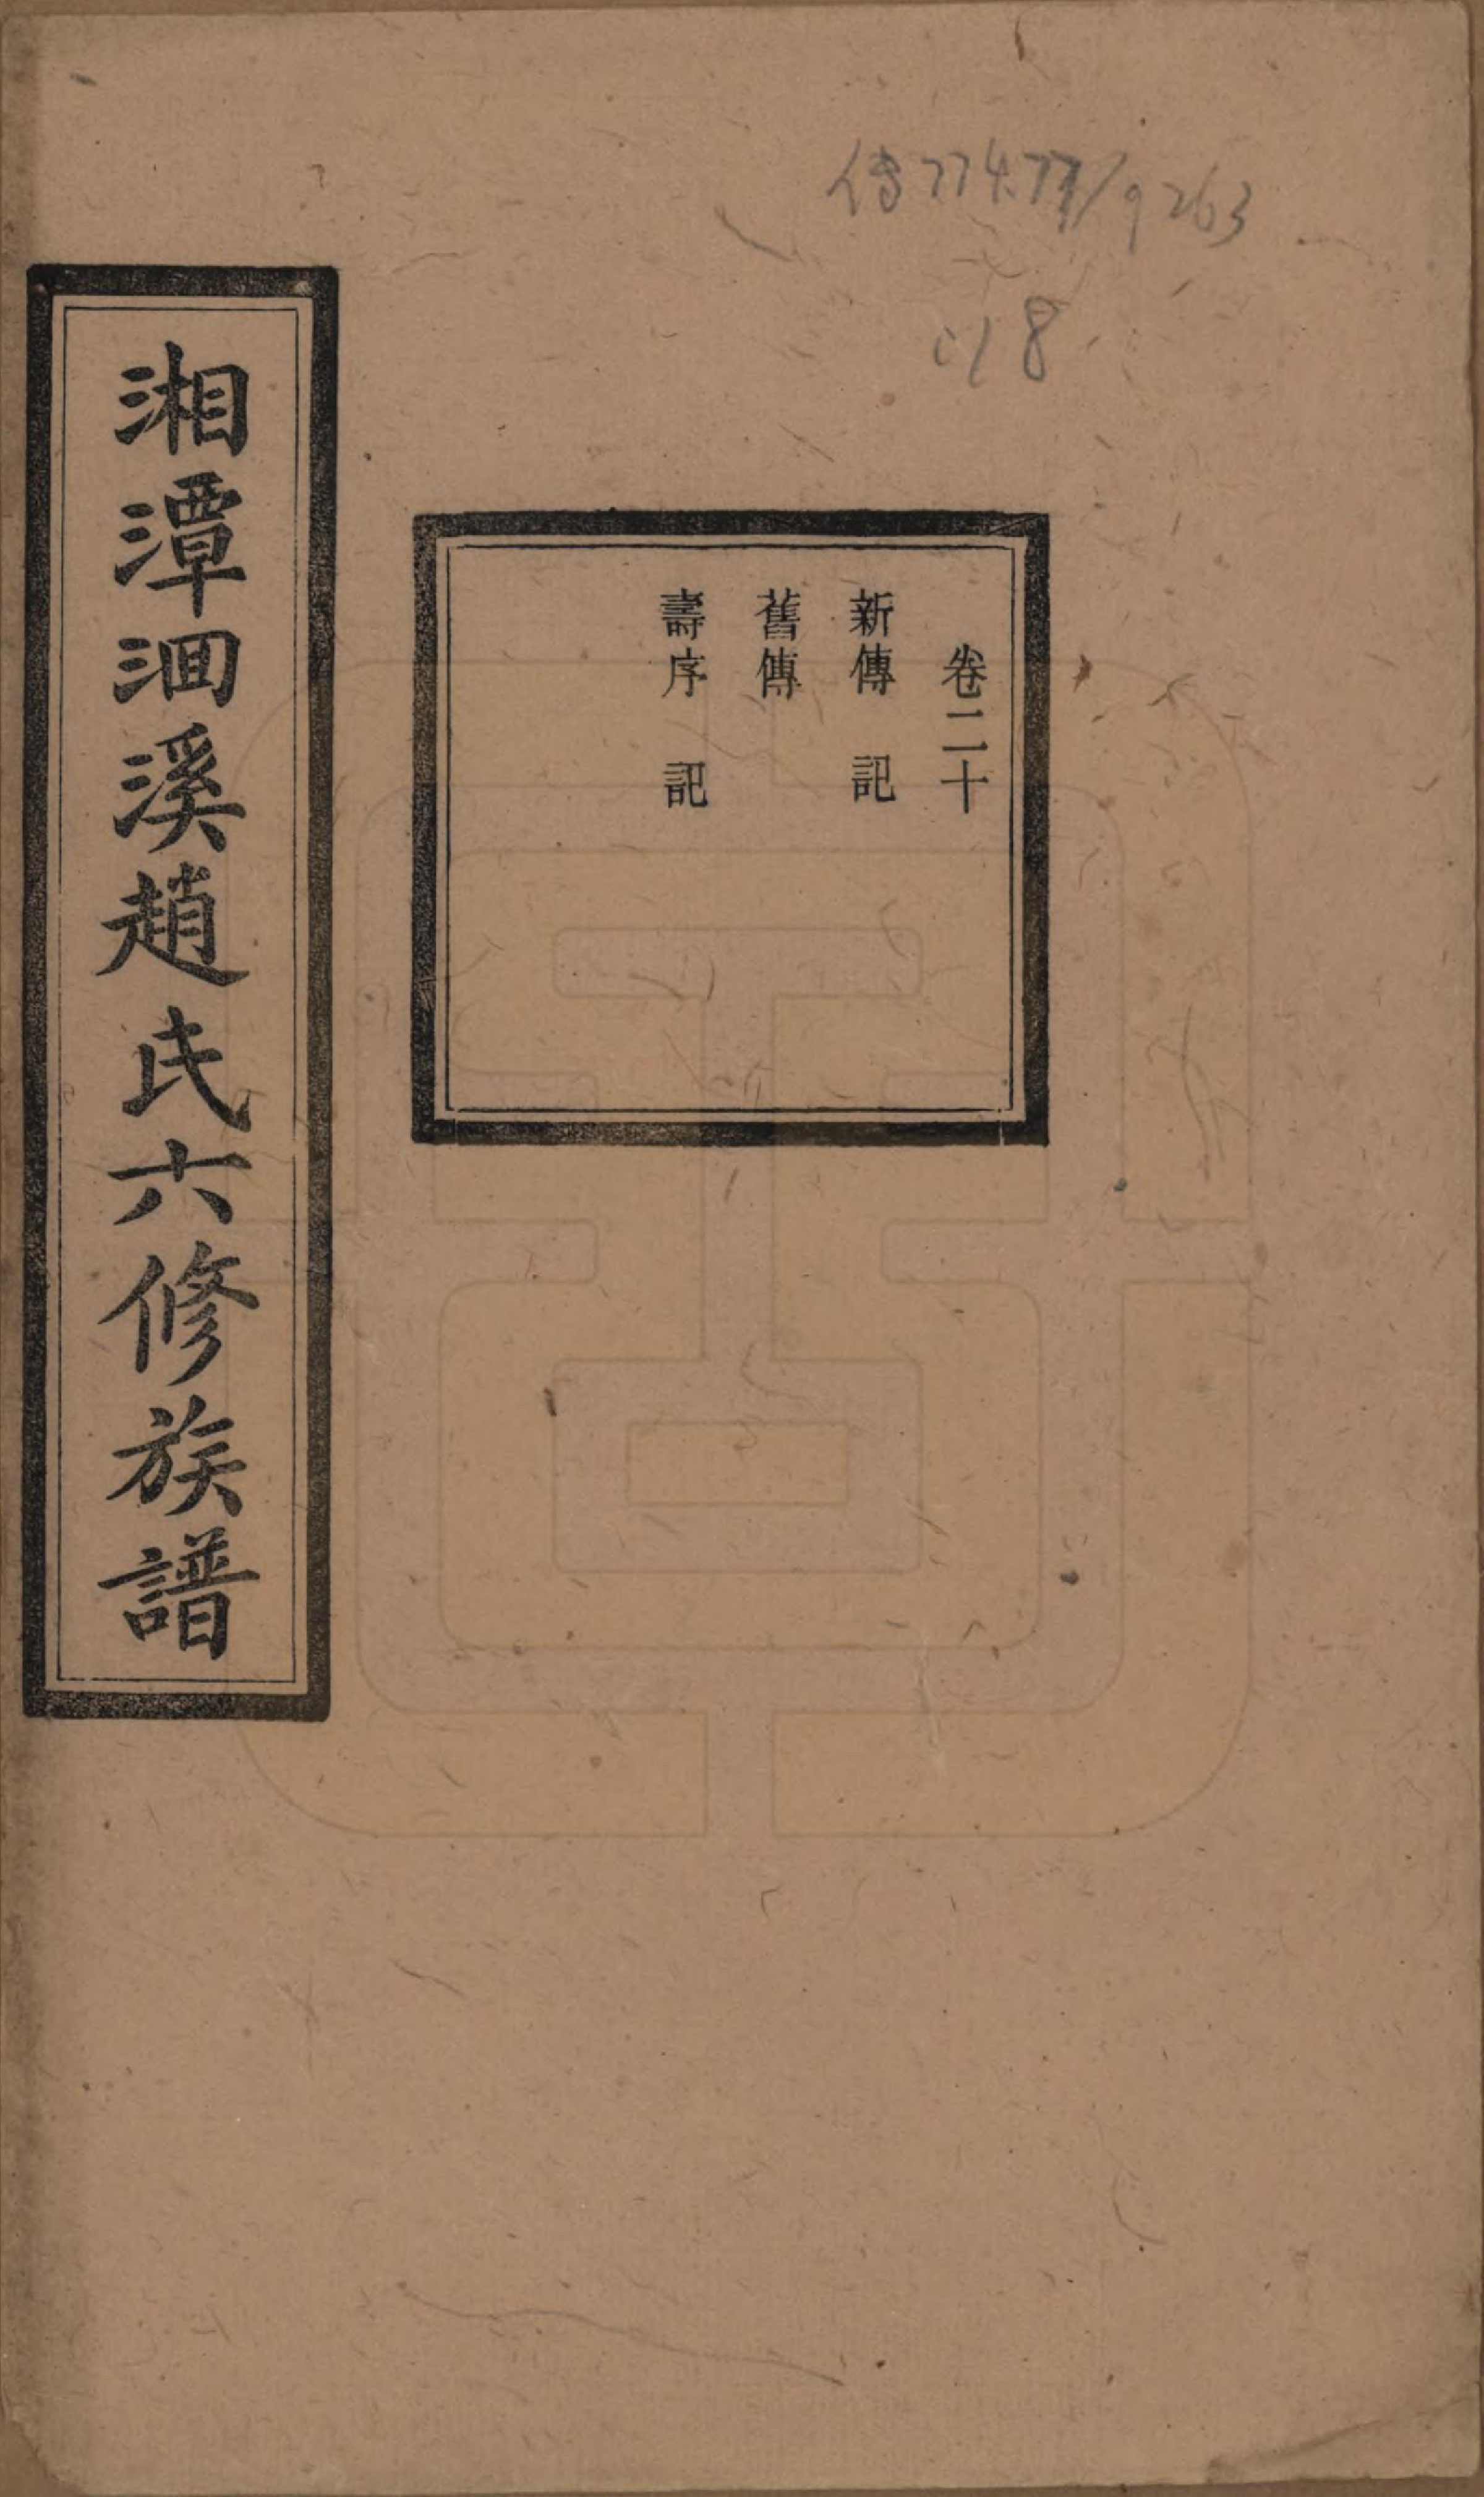 傳774.77/9263
:18
卷二十
新傳　記
舊傳
壽序　記
湘潭洄溪趙氏六修族譜